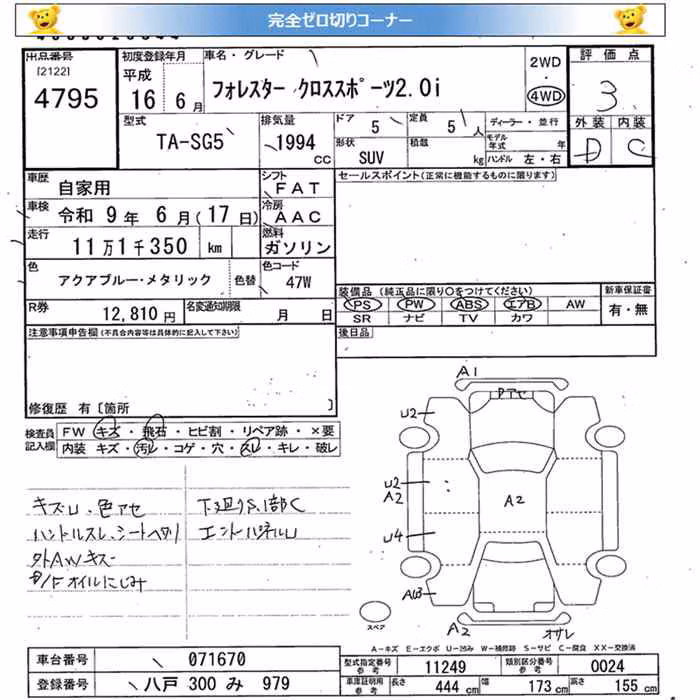 完全ゼロ切りコーナー
出品番号
[2122]
4795
初度登録年月
平成
16年 6月
車名・グレード
フォレスター クロススポーツ2.0i
2WD
・
4WD
評価点
3
外装 内装
D C
型式
TA-SG5
排気量
1994
CC
ドア
5
定員
5人
形状
SUV
積載
kg
ディーラー・並行
モデル年式 年
ハンドル 左・右
車歴
自家用
シフト
FAT
車検
令和 9年 6月(17日)
冷房
AAC
走行
11万1千350 km
燃料
ガソリン
色
アクアブルー・メタリック
色替
色コード
47W
R券
12,810円
名変通知期限
月 日
セールスポイント(正常に機能するものに限ります)
装備品(純正品に限り○をつけてください)
PS PW ABS エアB AW
SR ナビ TV カワ
新車保証書
有・無
後日品
注意事項申告欄(不具合内容等は具体的に記入して下さい)
修復歴 有〔箇所 〕
検査員記入欄
FW キズ・飛石・ヒビ割・リペア跡・×要
内装 キズ・汚レ・コゲ・穴・スレ・キレ・破レ
キズU、色アセ
ハンドルスレ、シートヘタリ
外AWキズ
オイルにじみ
下廻りS,1部C
エンドパネルU
A1
アセ
U2
U2
A2
A2
U4
A2
オサレ
スペア
A-キズ E-エクボ U-凹み W-補修跡 S-サビ C-腐食 XX-交換済
車台番号
071670
登録番号
八戸 300 み 979
型式指定番号
参考
11249
類別区分番号
参考
0024
車庫証明用
参考
長さ 444 cm 幅 173 cm 高さ 155 cm